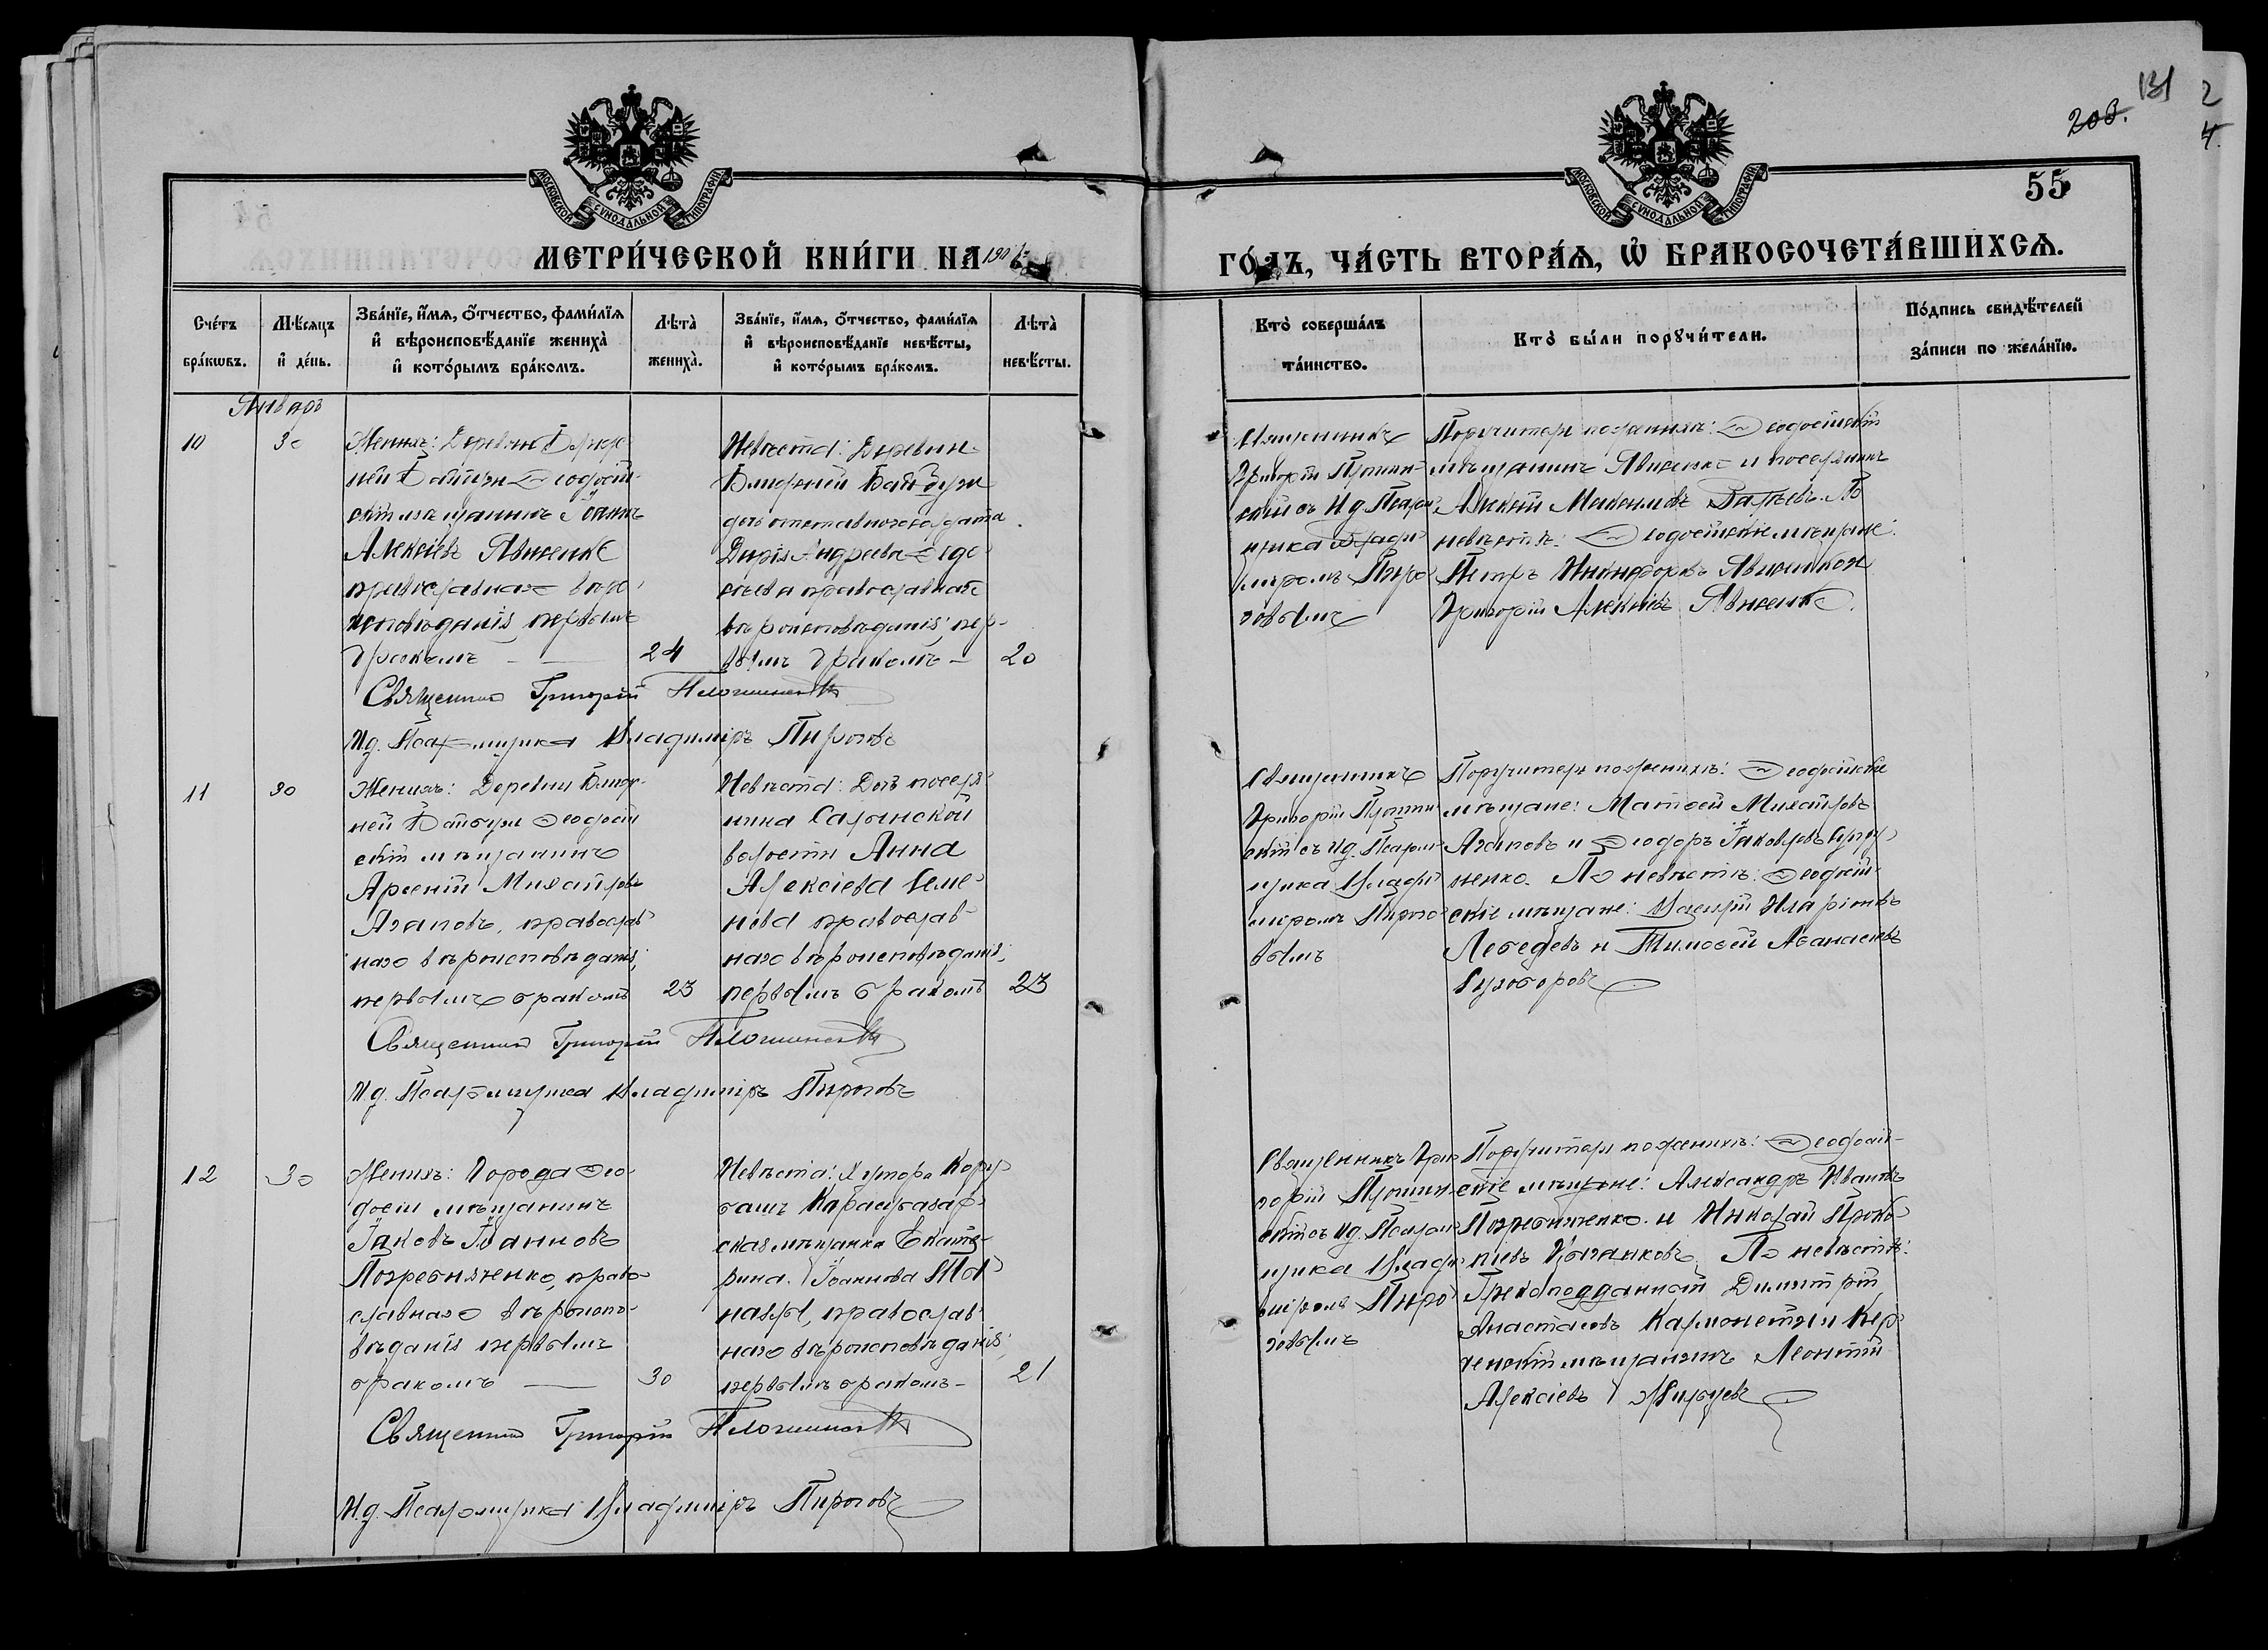 131
2
203.
4
55
МОСКОВСКОЙ СѴНОДАЛЬНОЙ ТИПОГРАФІИ
МОСКОВСКОЙ СѴНОДАЛЬНОЙ ТИПОГРАФІИ
МЕТРИ́ЧЕСКОЙ КНИ́ГИ НА 190
ГО́ДЪ, ЧА́СТЬ ВТОРА́Ѧ, Ѡ БРАКОСОЧЕТА́ВШИХСѦ.
Сче́тъ бра́кѡвъ.
Мѣ́сяцъ и де́нь.
Зва́нїе, и́мѧ, о́тчество, фами́лїѧ
и вѣроисповѣ́данїе жениха̀
и кото́рымъ бра́комъ.
Лѣта̀ жениха̀.
Зва́нїе, и́мѧ, о́тчество, фами́лїѧ
и вѣроисповѣ́данїе невѣ́сты,
и кото́рымъ бра́комъ.
Лѣта̀ невѣ́сты.
Кто̀ соверша́лъ та́инство.
Кто̀ бы́ли порꙋчи́тели.
По́дпись свидѣ́телей
за́писи по жела́нїю.
Январь
10
30
Женихъ: Деревни Ближ-
ней Байбуги Ѳеодосій-
скій мѣщанинъ Іоаннъ
Алексіевъ Явненко
православнаго вѣро-
исповѣданія первымъ
бракомъ — 24
Невѣста: Деревни
Ближней Байбуги
дочь отставного солдата
Дарія Андреева
православнаго
вѣроисповѣданія; пер-
вымъ бракомъ — 20
Священникъ
Григорій
скій съ И.д. Псалом-
щика Влади-
міромъ Пиро-
говымъ
Поручители по женихѣ: Ѳеодосійскій
мѣщанинъ Явненко и поселянинъ
Алексій По
невѣстѣ: Ѳеодосійскіе мѣщане:
Петръ Никифоровъ и
Григорій Алексіевъ Явненко.
Священникъ Григорій
И.д. Псаломщика Владиміръ Пироговъ
11
30
Женихъ: Деревни Ближ-
ней Байбуги Ѳеодосій-
скій мѣщанинъ
Арсеній Михайловъ
Агаповъ, православ-
наго вѣроисповѣданія;
первымъ бракомъ 23
Невѣста: Дочь поселя-
нина Салынской
волости Анна
Алексіева Семе-
нова православ-
наго вѣроисповѣданія;
первымъ бракомъ 23
Священникъ
Григорій
скій съ И.д. Псалом-
щика Влади-
міромъ Пирого-
вымъ
Поручители по женихѣ: Ѳеодосійскіе
мѣщане: Матѳей Михайловъ
Агаповъ и Ѳеодоръ Іаковлевъ
По невѣстѣ: Ѳеодосій-
скіе мѣщане: Василій Иларіоновъ
Лебедевъ и Тимоѳей Аѳанасіевъ
Священникъ Григорій
И.д. Псаломщика Владиміръ Пироговъ
12
30
Женихъ: Города Ѳео-
досіи мѣщанинъ
Іаковъ Іоанновъ
Погребняченко, право-
славнаго вѣроиспо-
вѣданія первымъ
бракомъ — 30
Невѣста: Хутора
башъ Карасубазар-
ская мѣщанка Екате-
рина Іоаннова
православ-
наго вѣроисповѣданія;
первымъ бракомъ — 21
Священникъ Гри-
горій
скій съ И.д. Псалом-
щика Влади-
міромъ Пиро-
говымъ
Поручители по женихѣ: Ѳеодосій-
скіе мѣщане: Александръ Ивановъ
Погребняченко и Николай Проко-
піевъ Цыганковъ. По невѣстѣ:
Грекоподданный Димитрій
Анастасовъ и Кер-
ченскій мѣщанинъ Леонтій
Алексіевъ
Священникъ Григорій
И.д. Псаломщика Владиміръ Пироговъ